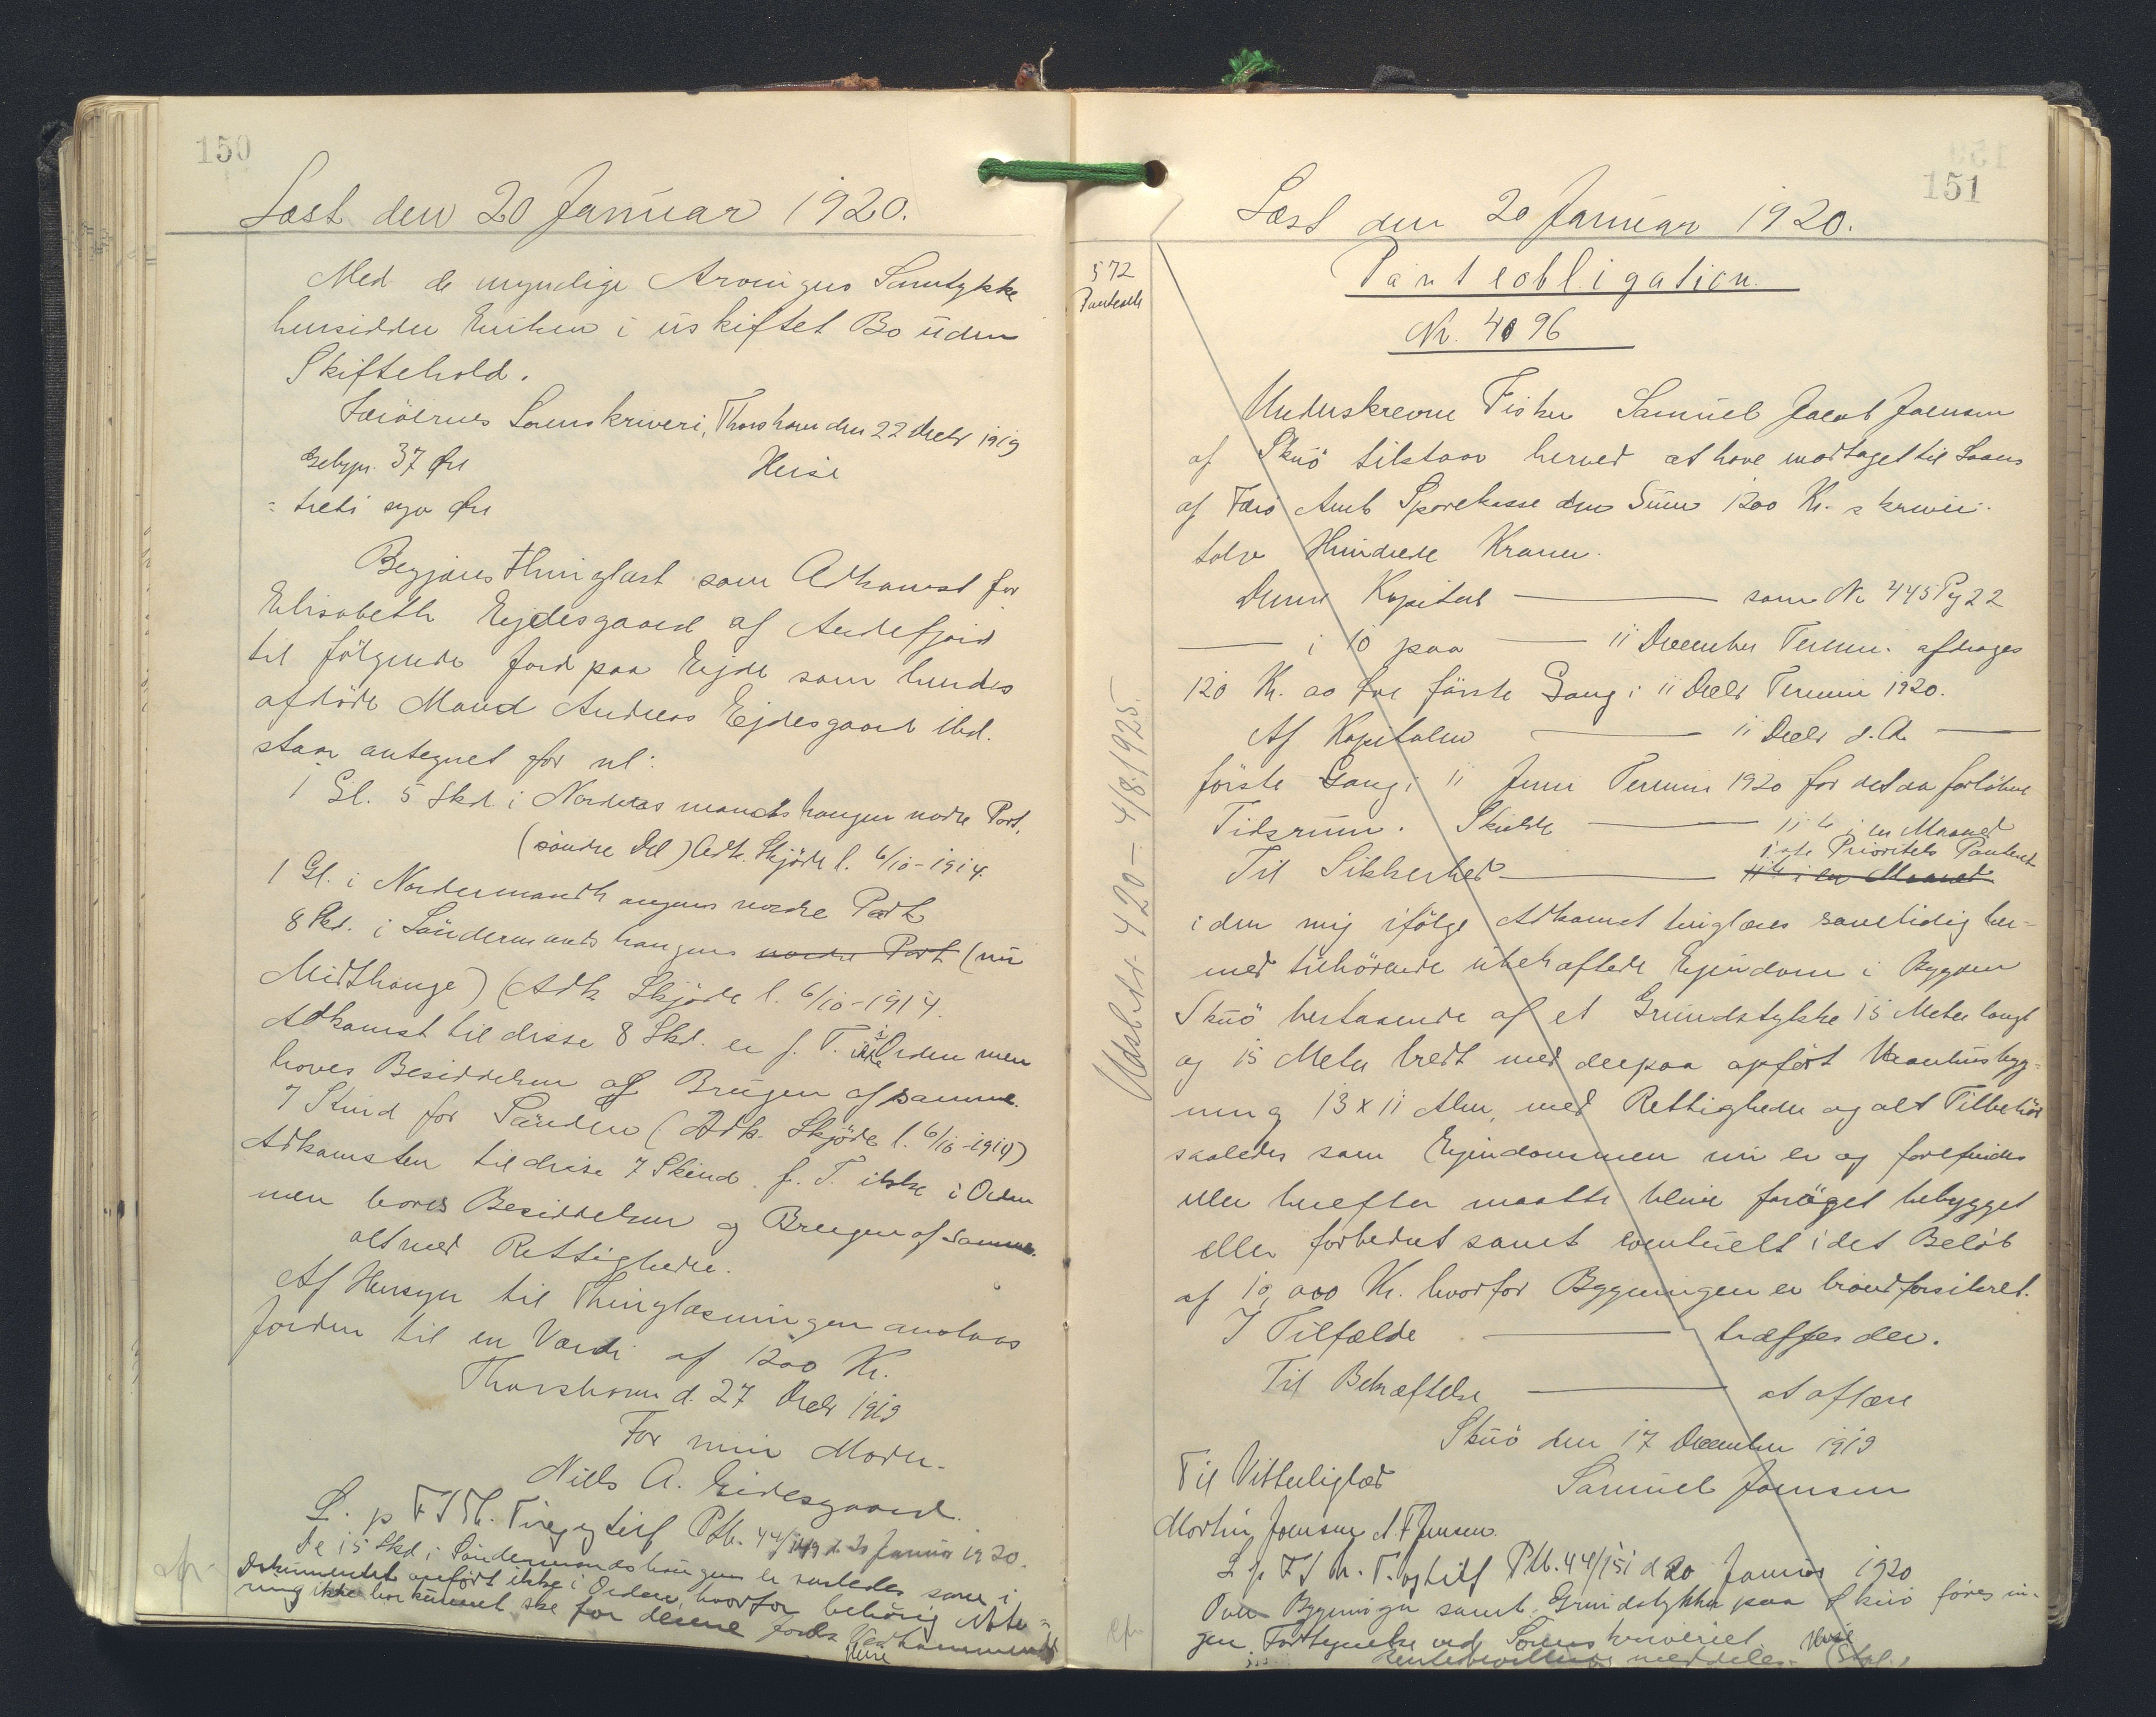 150
Læst den 20 Januar 1920.
Med de myndige Arvingers Samtykke
hensidder Enken i uskiftet Bo uden
Skiftehold.
Færöernes Sorenskriveri, Thorshavn den 22 Decbr 1919
Gebyr. 37 Øre Heise
= treti syv Øre
Begjæres thinglæst som Adkomst for
Elisabeth Ejdesgaard af Andefjord
til fölgende Jord paa Ejde som hendes
afdöde Mand Andreas Ejdesgaard ibd.
staar antegnet for nl:
1 Gl. 5 Skd. i Nordasmandshaugen nodre Part.
(söndre Del) Adk. Skjöde l. 6/10-1914.
1 Gl. i Nordermandshaugens nordre Part
8 Skd. i Söndermandshaugens nordre Part (nu
Midthauge) (Adk Skjöde l. 6/10-1914.
Adkomst til disse 8 Skd. er f. T. ikke i Orden men
haves Besiddelsen og Brugen af samme.
7 Skind for Sanden (Adk. Skjöde l. 6/10-1914)
Adkomsten til disse 7 Skind. f. T. ikke i Orden
men haves Besiddelsen og Brugen af samme.
alt med Rettigheder.
Af Hensyn til Thinglæsningen anslaas
Jorden til en Værdi af 1200 Kr.
Thorshavn d. 27 Decbr 1919
For min Moder.
Niels A. Eidesgaard.
L. p F S Th. Tinge og tilf Ptb. 44/149 d. 20 Januar 1920.
De 15 Skd. i Söndermandshaugen er saaledes som i
Dokumentet anført ikke i Orden, hvorfor behörig Note=
ring ikke har kunnet ske for denne Jords Vedkommende
Heise
151
Læst den 20 Januar 1920.
572
Panteobl
Panteobligation.
Nr. 4096
Underskrevne Fisker Samuel Jacob Joensen
af Skuö tilstaar herved at have modtaget til Laans
af Færö Amts Sparekasse den Sum 1200 Kr. skriver:
tolv Hundrede Kroner.
Denne Kapital — som Nr 445 Pg 22
— i 10 paa — 11 December Termin. afdrages
120 Kr. ao for förste Gang i 11 Decbr Termin 1920.
Af Kapitalen — 11 Decbr d. A. —
förste Gang i 11 Juni Termin 1920 for det da forlöbne
Tidsrum. Skulde — 11te i en Maaned
1ste Prioritets Panteret
Til Sikkerhed — 11te i en Maaned
i den mig ifölge Adkomst tinglæses samtidig her-
med tilhörende ubehæftede Ejendom i Bygden
Skuö bestaaende af et Grundstykke 15 Meter langt
og 15 Meter bredt med derpaa opfört Vaaningshusbyg=
ning 13 x 11 Alen, med Rettigheder og alt Tilbehör
saaledes som Ejendommen nu er og forefindes
eller herefter maatte blive forøget bebygget
eller forbedret samt eventuelt i det Belöb
af 10,000 Kr. hvorfor Bygningen er brandforsikret.
I Tilfælde — træffes der.
Til Bekræftelse — at aflæse
Skuö den 17 December 1919
Til Vitterlighed Samuel Joensen
Martin Joensen A. F. Jensen.
L p. F S Th. T. og tilf Ptb. 44/151 d 20 Januar 1920
Over Bygninger samt Grundstykker paa Skuö föres in-
gen Fortegnelse ved Sorenskriveriet Heise
meddeles
Udslettet 420 — 4/8 1925.